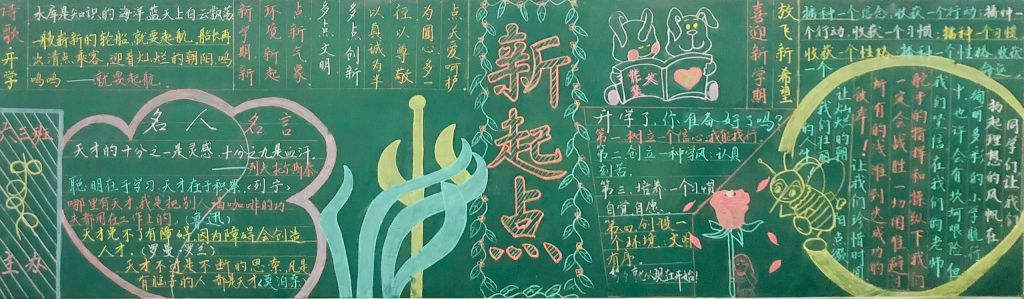 诗歌·开学
水库是知识的海洋蓝天上白云飘荡
一般崭新的轮船,就要起航,船长再
次清点乘客,迎着灿烂的朝阳,呜
呜呜——就要起航。
新学期新
环境新起
点新气象
多点文明
多点创新
以真诚为半
径以尊敬
为圆心多一
点关爱呵护
喜迎新学期
放飞新希望
播种一个信念,收获一个行动;播种一
个行动,收获一个习惯;播种一个习惯
收获一个性格,播种一个性格,收获
一个命运
主办
名人名言
天才的十分之一是灵感,十分之九是血汗
列夫托尔斯泰
聪明在于学习,天才在于积累。(列宁)
哪里有天才,我是把别人喝咖啡的功
夫都用在工作上的。(鲁迅)
天才免不了有障碍,因为障碍会创造
人才。(罗曼·罗兰)
天才不才是不断的思索,凡是
有脑子的人都是天才(莫泊桑)
新起点
开学了,你准备好了吗?
第一树立一个信心,我能我行
第二创立一种学风:认真
刻苦。
第三,培养一个习惯
自觉自愿
第四创设一
个环境,文明
有序。
现在开始!
同学们让我们
扬起理想的风帆在
绚丽多彩的小学航行
中也许会有坎坷艰险但
我们坚信在我们的老师
舵手的指挥和操纵下我们
一定会战胜一切困难避
所有的浅滩到达成功的
彼岸!让我们珍惜时间